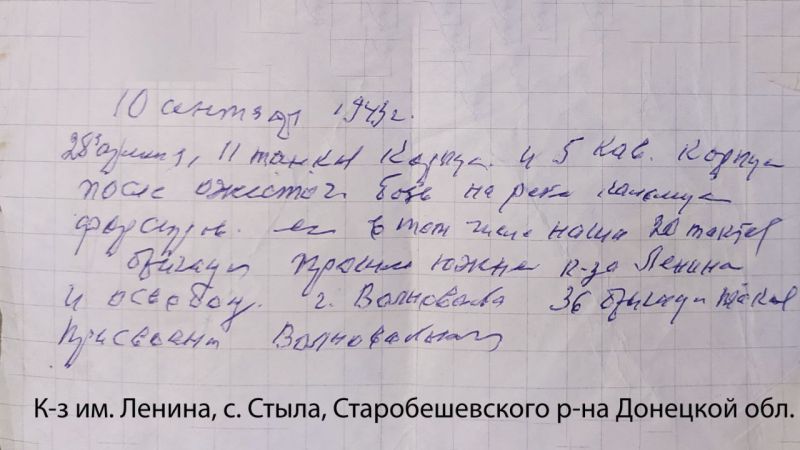 10 сентября 1943г.
28 армия, 11 танков Корпус. и 5 Кав. Корпус
после ожесточ боев на реке
форсиров. его в том числе наша 20 танков
бригада южнее к-за Ленина
и освобод. г. Волноваха 36 бригаде танков
присвоен Волновахский
К-з им. Ленина, с. Стыла, Старобешевского р-на Донецкой обл.